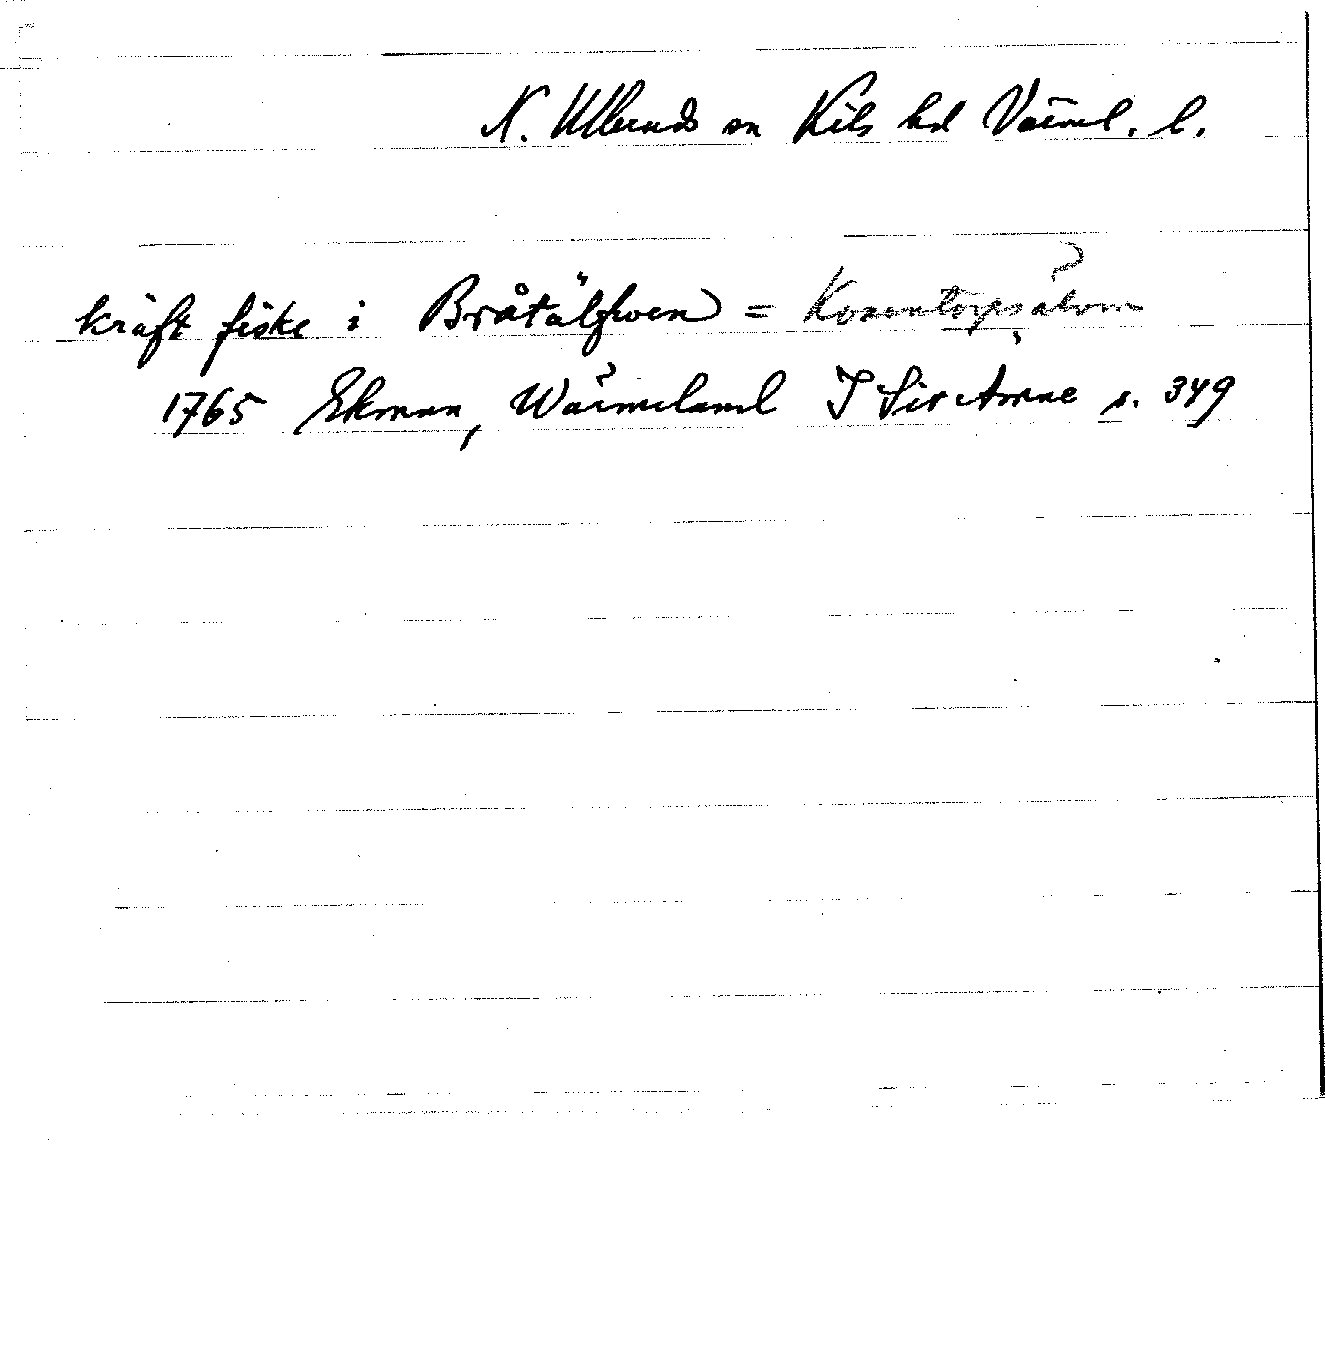 N. Ullerud sn Kils hd Värml. l.
kräft fiske i Bråtälfwen = älven
1765 Ekman, Wärmeland I Sitt Ämne s. 349